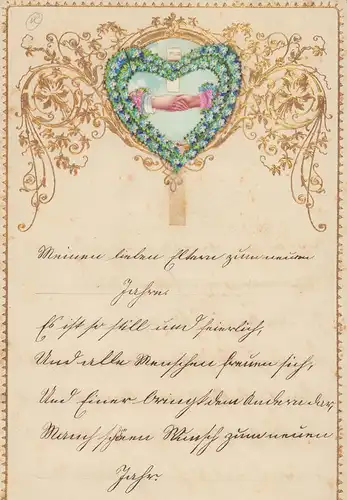 Meinen lieben Eltern zum neuen
Jahre.
Es ist so still und feierlich,
Und alle Menschen freuen sich,
Und Einer bringt dem Andern dar,
Manch schönen Wunsch zum neuen
Jahr.